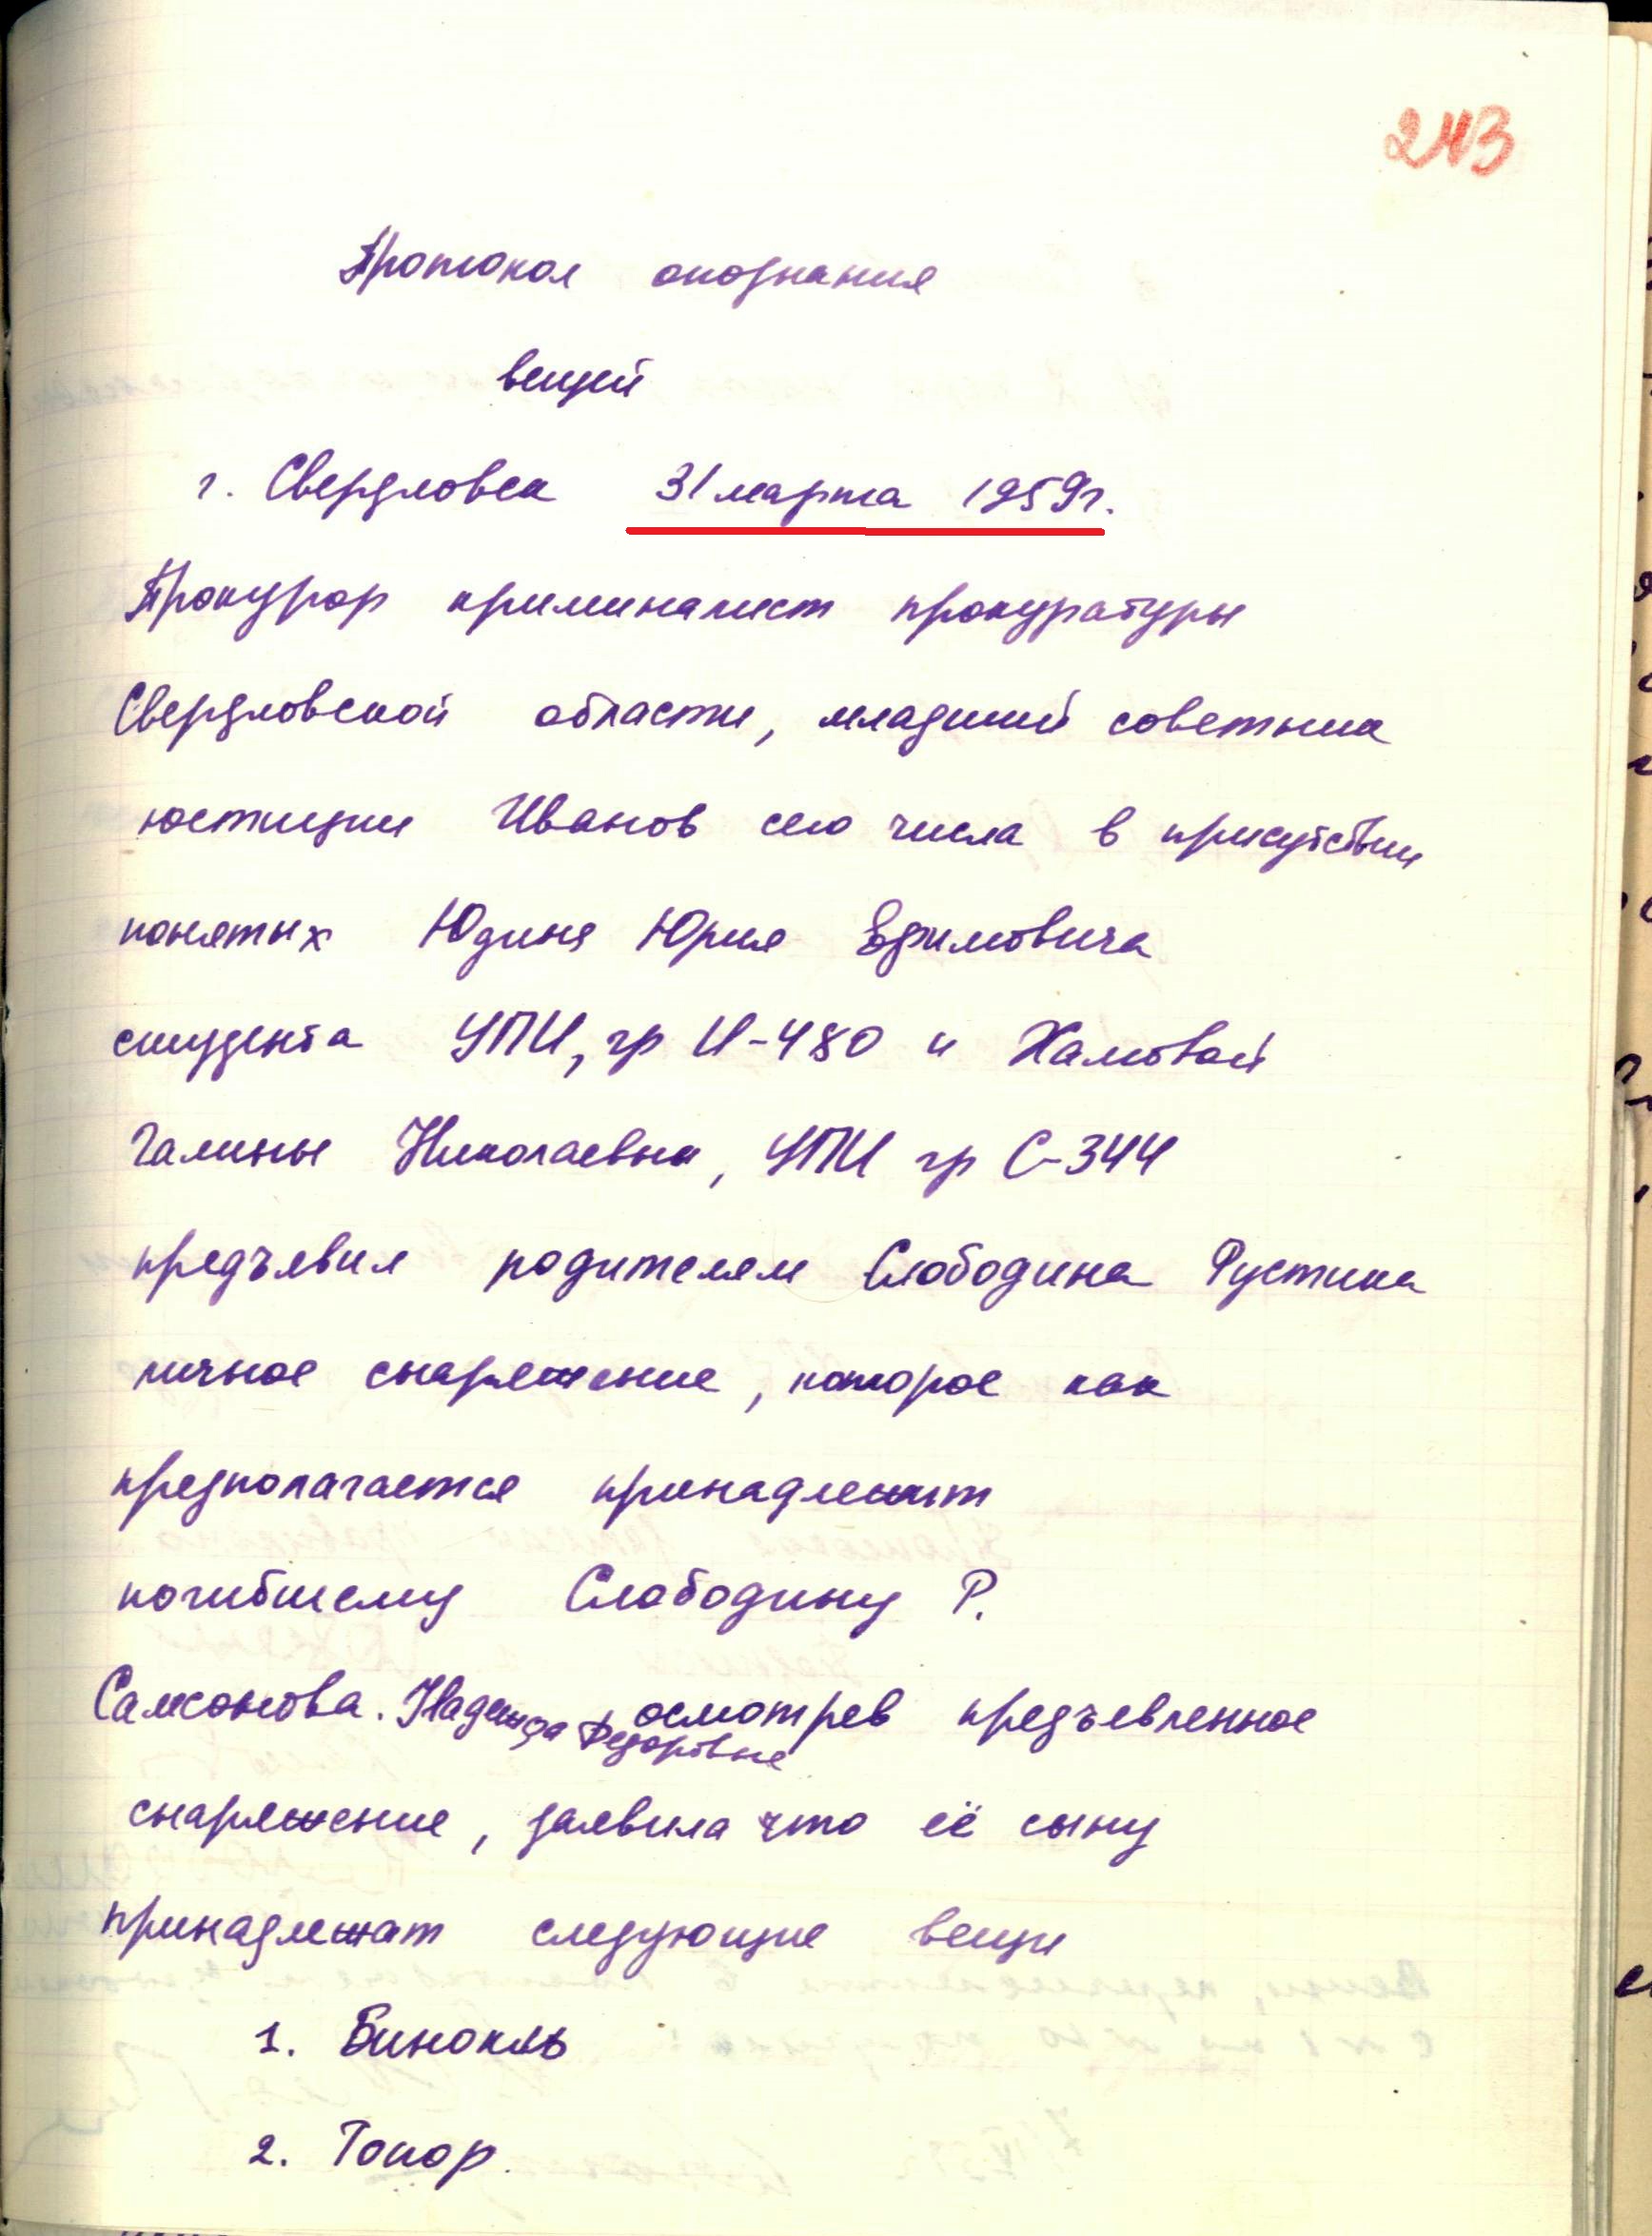 243
Протокол опознания
вещей
г. Свердловск 31 марта 1959г.
Прокурор криминалист прокуратуры
Свердловской области, младший советник
юстиции Иванов сего числа в присутствии
понятых Юдина Юрия Ефимовича
студента УПИ, гр И-480 и Хамовой
Галины Николаевны, УПИ гр С-344
предъявил родителям Слободина Рустика
личное снаряжение, которое как
предполагается принадлежит
погибшему Слободину Р.
Самсонова. Надежда Федоровна осмотрев предъявленное
снаряжение, заявила что её сыну
принадлежат следующие вещи
1. Бинокль
2. Топор.